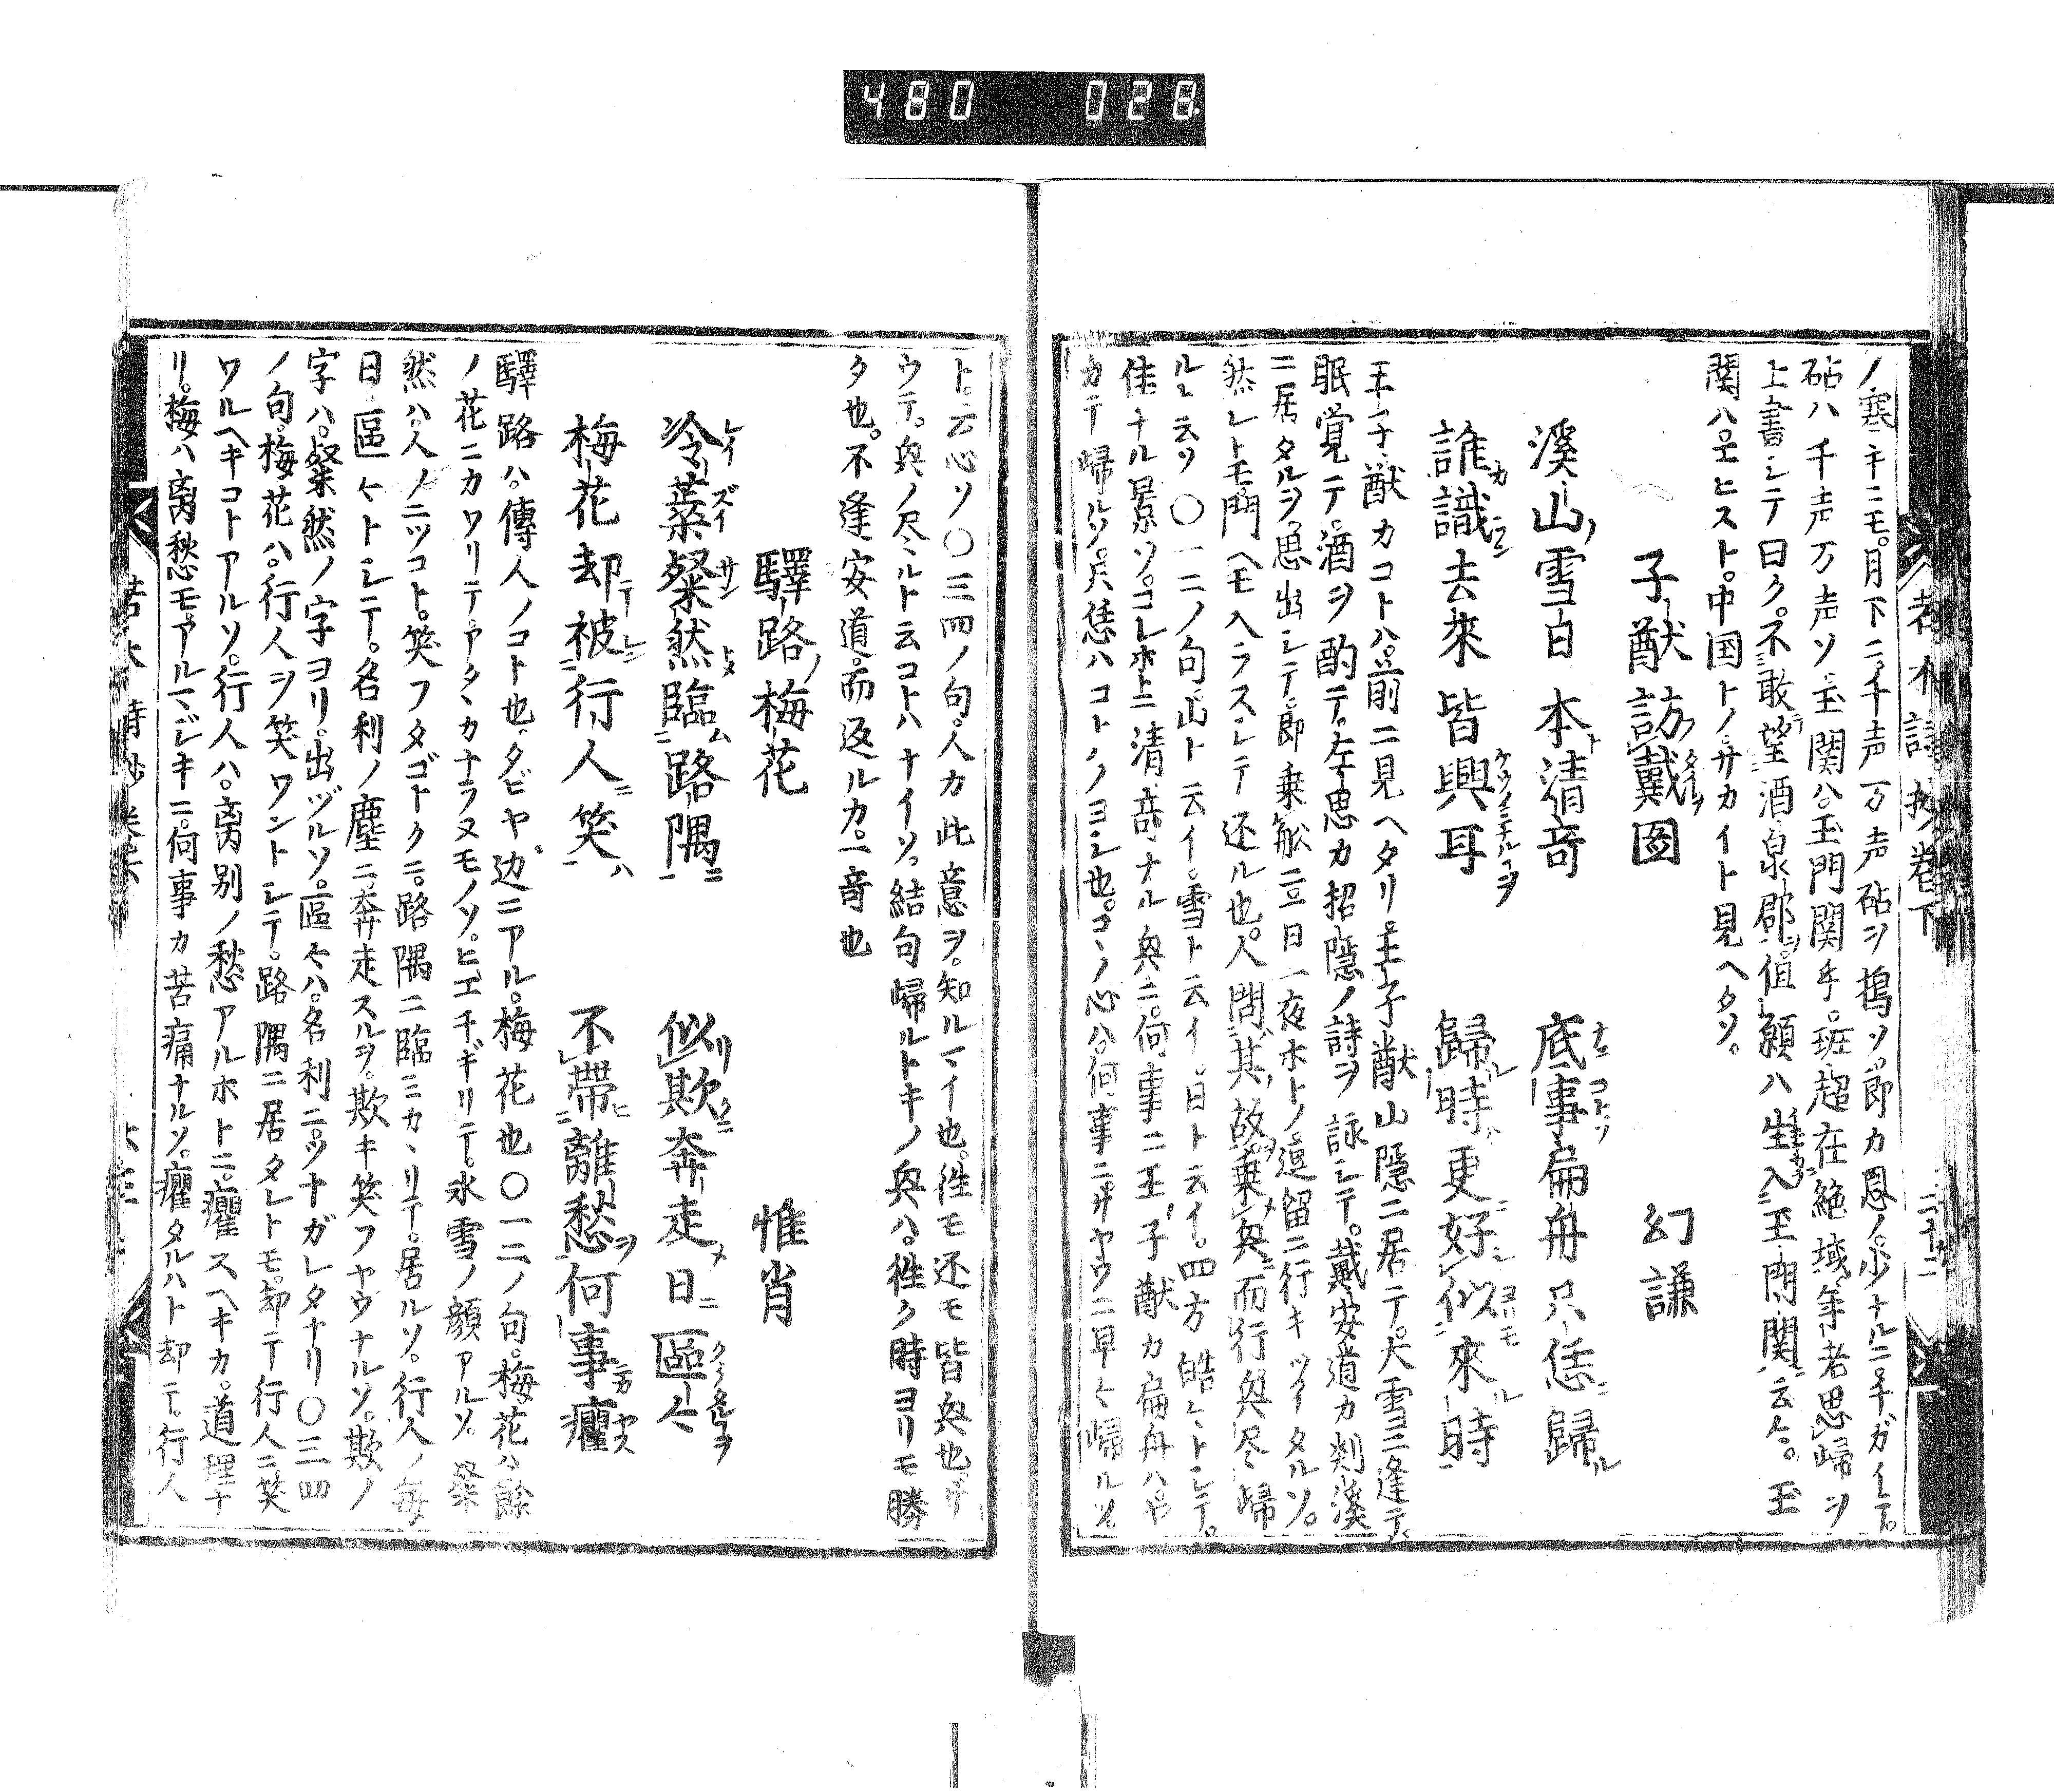 480 028
ノ寒キニモ。月下ニ千声万声砧ヲ擣ソ。節カ恩ノ少ナルニチガイテ。
砧ハ千声万声ソ玉関ハ玉門関乎。班超在絶域年老思帰ヲ
上書シテ曰ク。不敢望酒泉郡。値願ハ生入玉門関云々。玉
関ハヱヒスト。中国トノサカイト見ヘタソ。
子猷訪戴図 幻謙
溪山雪白本清奇 底事扁舟只恁歸
誰識去來皆興耳 歸時更好似來時
王子猷カコトハ前ニ見ヘタリ。王子猷山隱ニ居テ。大雪ニ逢テ。
眠覚テ酒ヲ酌テ。左思カ招隱ノ詩ヲ詠シテ。戴安道カ剡溪
ニ居タルヲ思出シテ。即乗舩ニ日一夜ホトノ逗留ニ行キツイタルソ。
然レトモ門ヘモ入ラスシテ还ル也。人問其故。乗興而行興尽歸
ルト云ソ〇一二ノ句山ト云イ。雪ト云イ。日ト云イ。四方皓々トシテ。
佳ナル景ソ。コレホトニ清奇ナル興ニ。何事ニ王子猷カ扁舟ハ
カテ歸ルソ。只恁ハコトノヨシ也。コノ心ハ何事ニサヤウニ早々歸ルソ
ト。云心ソ〇三四ノ句。人カ此意ヲ。知ルマイ也。徃モ还モ皆興也。
ウテ。興ノ尽ルト云コトハナイソ。結句歸ルトキノ興ハ。徃ク時ヨリモ勝
タ也。不逢安道而返ルカ。一音也
驛路梅花 惟肖
冷蘂粲然臨路隅 似欺奔走日區々
梅花却被行人笑 不帶離愁何事癯
驛路ハ傳人ノコト也。タビヤ辺ニアル。梅花也〇一二ノ句。梅花ハ餘
ノ花ニカワリテ。アタヽカナラヌモノソ。ヒエチギリテ。氷雪ノ顔アルソ。粲
然ハ。人ノニツコト。笑フタゴトクニ。路隅ニ臨ミカヽリテ。居ルソ。行人ノ毎
日區々トシテ。名利ノ塵ニ奔走スルヲ。欺キ笑フヤウナルソ。欺ノ
字ハ。粲然ノ字ヨリ。出ヅルソ。區々ハ。名利ニツナガレタナリ〇三四
ノ句。梅花ハ。行人ヲ笑ワントシテ。路隅ニ居タレトモ。却テ行人ニ笑
ワルヘキコトアルソ。行人ハ。离別ノ愁アルホトニ。癯スヘキカ。道理ナ
リ。梅ハ离愁モ。アルマジキニ。何事カ苦痛ナルソ。癯タルハト却テ。行人